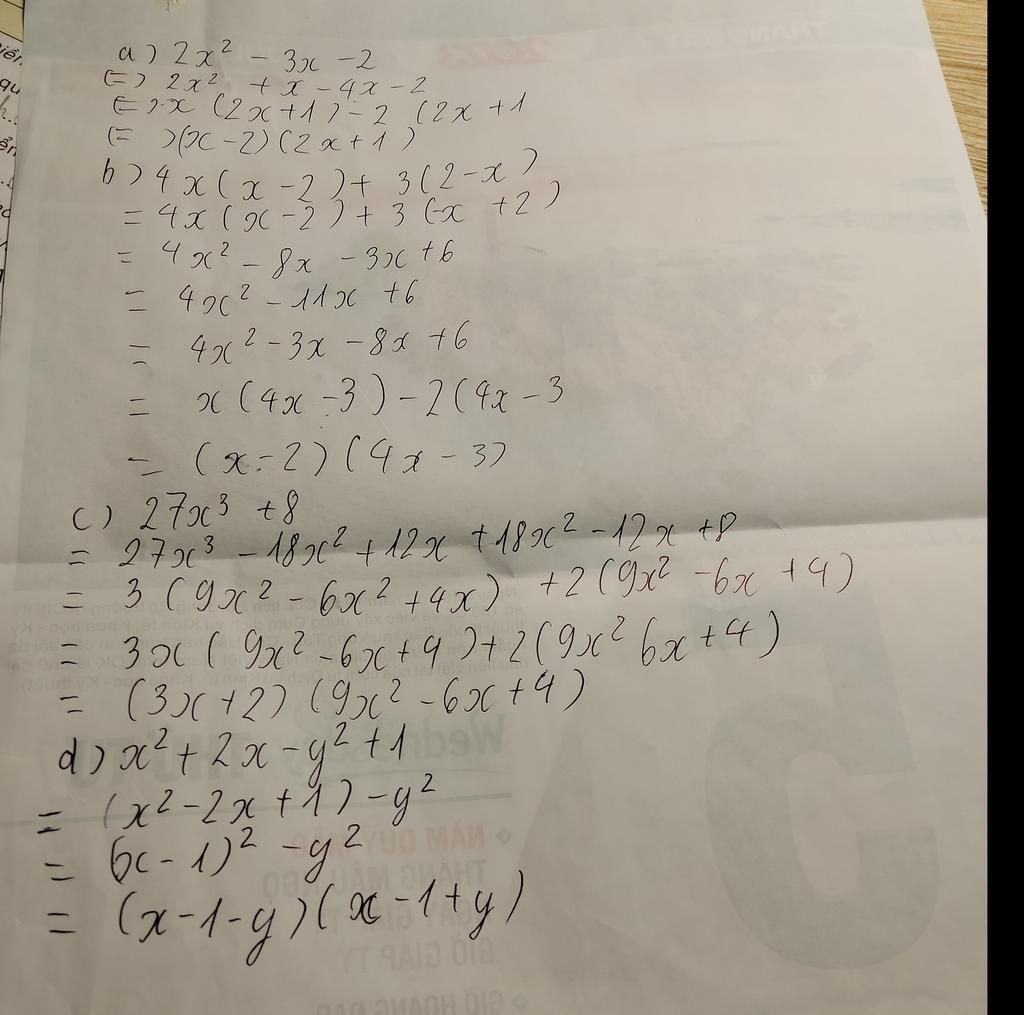 a) 2x² - 3x - 2
(=) 2x² + x - 4x - 2
(=) x (2x+1) - 2 (2x+1
(=) (x-2)(2x+1)
b) 4x(x-2) + 3(2-x)
= 4x(x-2) + 3(-x +2)
= 4x² - 8x - 3x + 6
= 4x² - 11x + 6
= 4x² - 3x - 8x + 6
= x(4x-3) - 2(4x-3
= (x-2)(4x-3)
c) 27x³ + 8
= 27x³ - 18x² + 12x + 18x² - 12x + 8
= 3(9x² - 6x² + 4x) + 2(9x² - 6x + 4)
= 3x(9x² - 6x + 4) + 2(9x² 6x + 4)
= (3x+2)(9x² - 6x + 4)
d) x² + 2x - y² + 1
= (x² - 2x + 1) - y²
= (x-1)² - y²
= (x-1-y)(x-1+y)